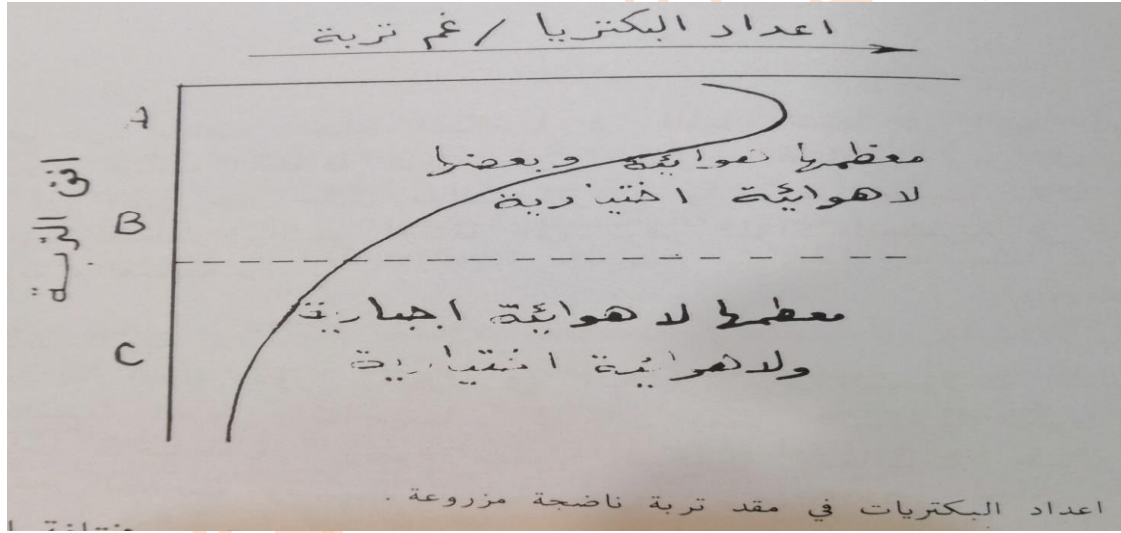 اعداد البكتريا / غم تربة
A
معظمها هوائية وبعضها
لاهوائية اختيارية
افق التربة
B
معظمها لاهوائية اجبارية
ولاهوائية اختيارية
C
اعداد البكتريات في مقد تربة ناضجة مزروعة .